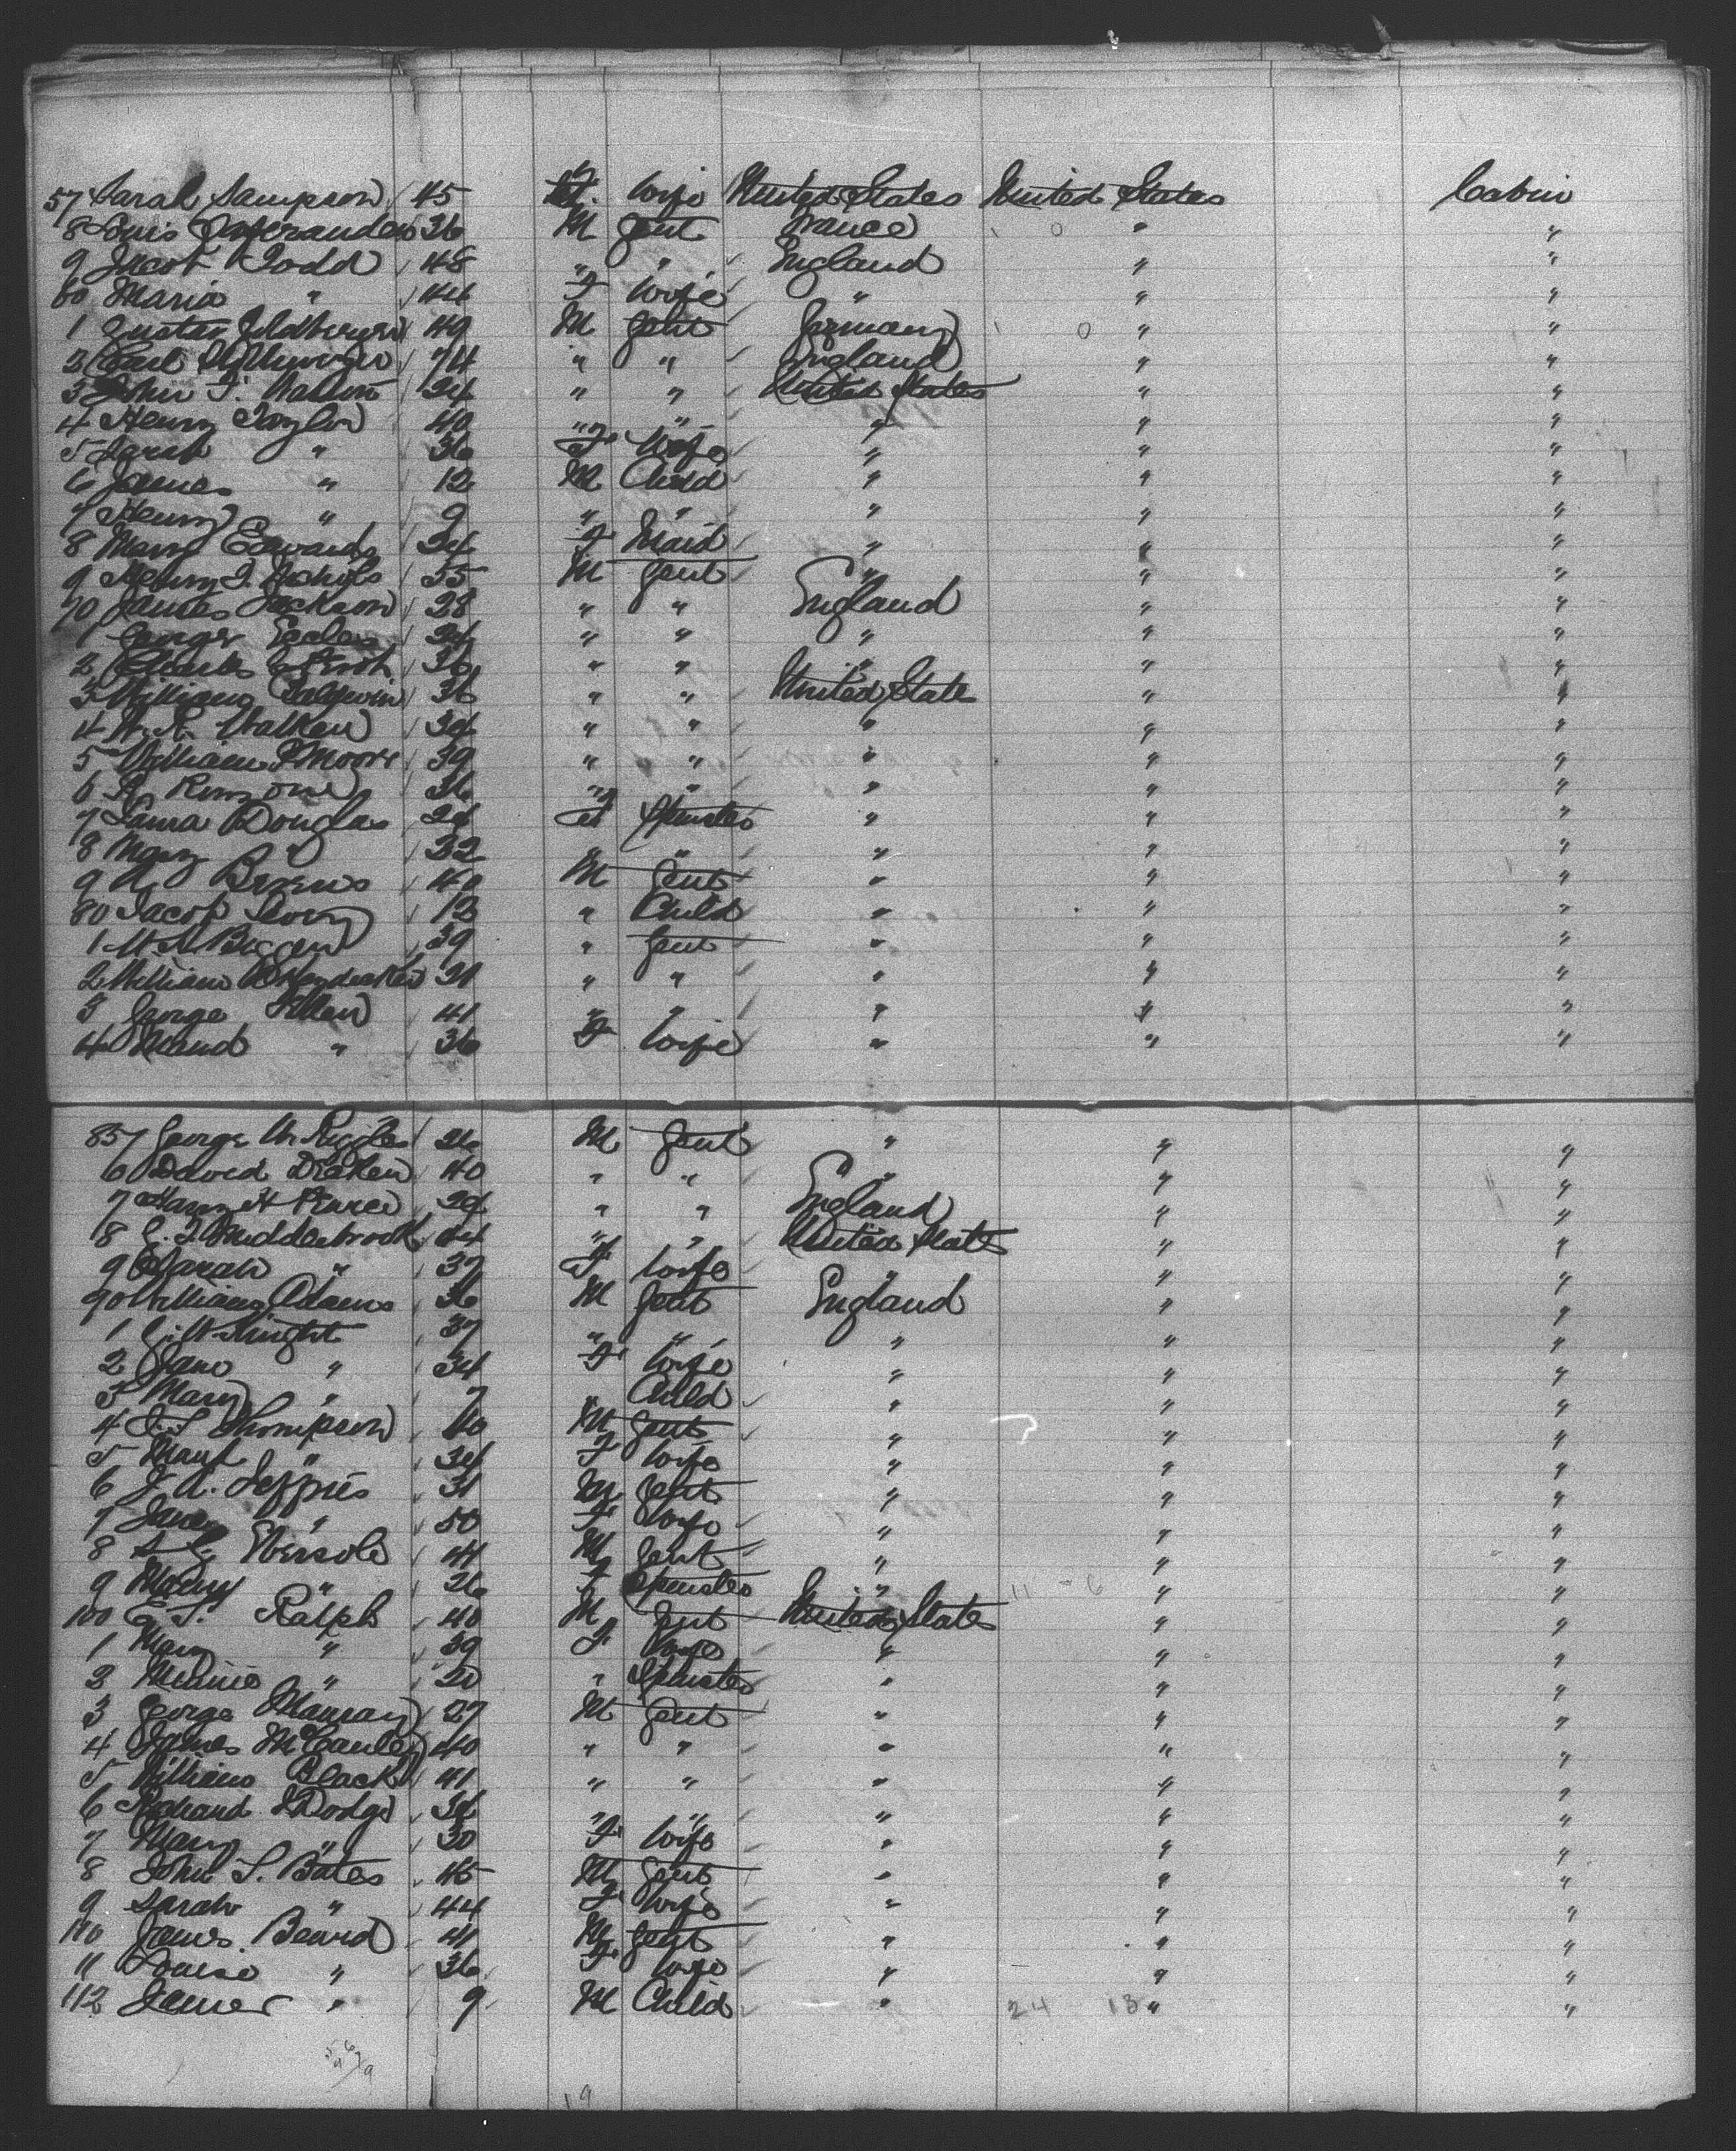 57 Sarah Sampson 45 F. Wife United States United States Cabin
8 Louis 36 M Gent France " "
9 Jacob Todd 48 " " England " "
60 Maria " 44 F Wife " " "
1 Gustav 49 M Gent Germany " "
2 Carl 74 " " England " "
3 John F. 34 " " United States " "
4 Henry Taylor 40 " " " " "
5 Sarah " 36 F Wife " " "
6 James " 12 M Child " " "
7 Henry " 9 " " " " "
8 Mary Edwards 34 F Maid " " "
9 Henry J. Nichols 55 M Gent " " "
70 James Jackson 28 " " England " "
1 George Eccles 34 " " " " "
2 36 " " " " "
3 William Baldwin 36 " " United State " "
4 W. R. Walker 34 " " " " "
5 William Moore 39 " " " " "
6 36 " " " " "
7 Laura Douglas 24 F Spinster " " "
8 Mary " 32 " " " " "
9 40 M Gent " " "
80 Jacob 12 " Child " " "
1 39 " Gent " " "
2 William 31 " " " " "
3 George Allen 41 " " " " "
4 Maud " 36 F Wife " " "
857 George W. Ruggles 26 M Gent " " "
6 David 40 " " " " "
7 Harry H Pearce 29 " " England " "
8 Middlebrook 44 " " United States " "
9 Sarah " 37 F Wife " " "
90 William Adams 36 M Gent England " "
1 37 " " " " "
2 Jane " 34 F Wife " " "
3 Mary " 7 " Child " " "
4 Thompson 40 M Gent " " "
5 " 34 F Wife " " "
6 J. A. Jeffries 31 M Gent " " "
7 " 50 F Wife " " "
8 Ebersole 44 M Gent " " "
9 Mary " 26 F Spinster " " "
100 Ralph 40 M Gent United States " "
1 Mary " 39 F Wife " " "
2 Minnie " 20 " Spinster " " "
3 George Murray 27 M Gent " " "
4 James McCauley 40 " " " " "
5 William Black 41 " " " " "
6 Dodge 34 " " " " "
7 Mary " 30 F Wife " " "
8 John S. Bates 45 M Gent " " "
9 Sarah " 44 F Wife " " "
110 James Beard 41 M Gent " " "
11 Louise " 36 F Wife " " "
112 James " 9 M Child " " "
24 13
19